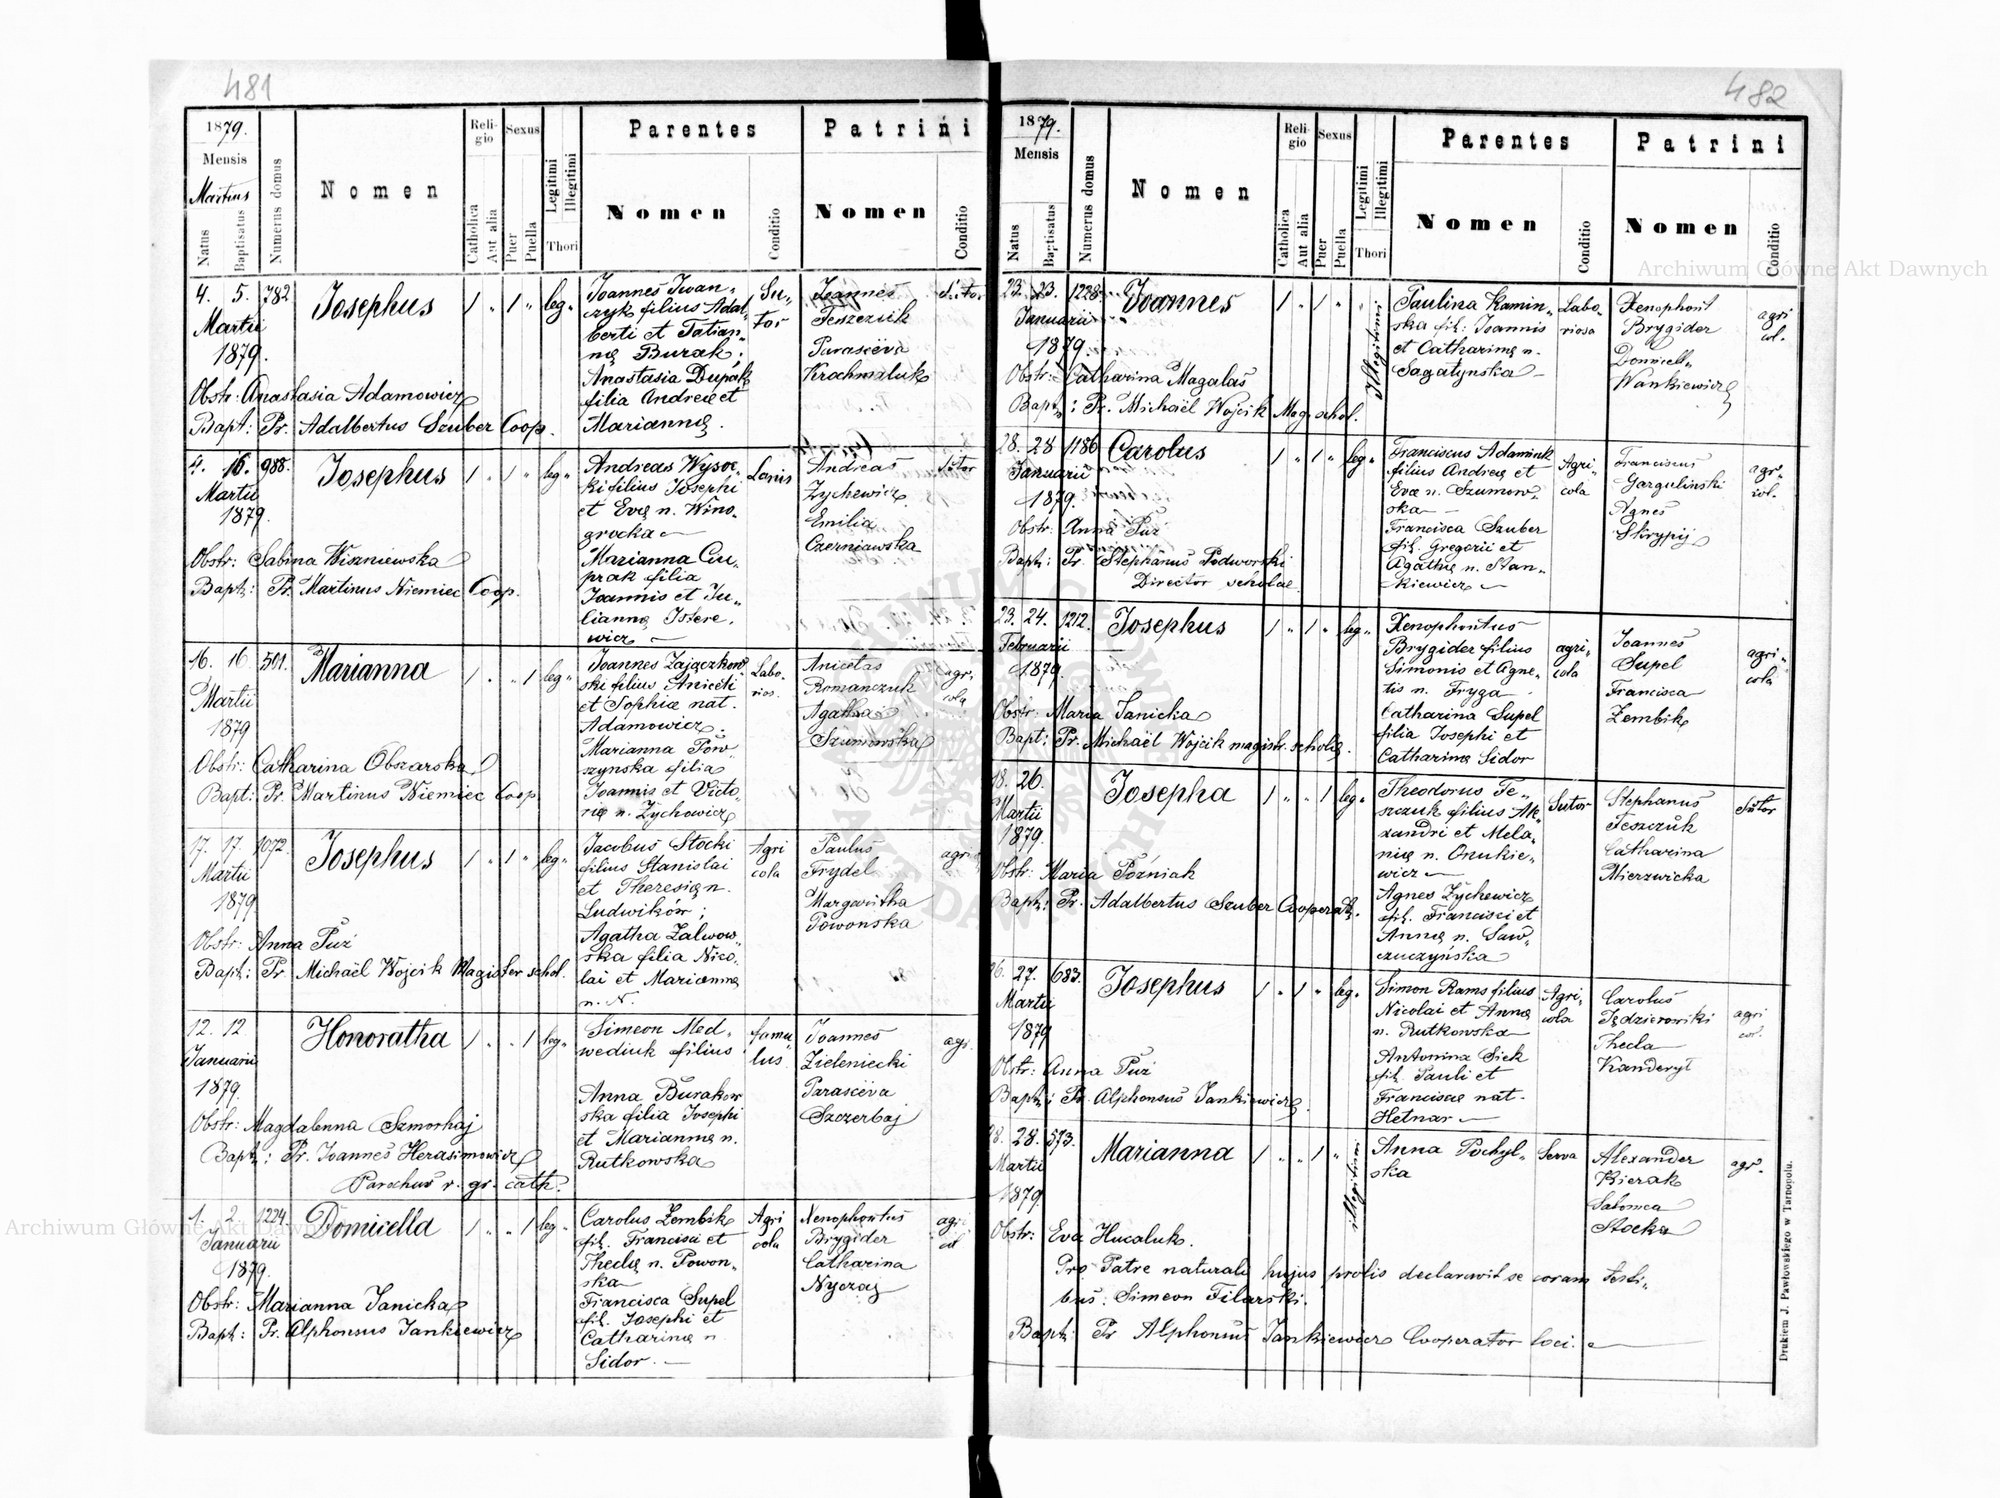 481
1879.
Mensis
Martius
Natus
Baptisatus
Numerus domus
Nomen
Religio
Catholica
Aut alia
Sexus
Puer
Puella
Legitimi
Illegitimi
Thori
Parentes
Nomen
Conditio
Patrini
Nomen
Conditio
4. 5. 782 Josephus 1 " 1 " leg"
Martii
1879.
Joannes Iwan-
czyk filius Adal-
berti et Tatian-
nę Burak;
Anastasia Dupak
filia Andreæ et
Mariannę.
Su-
tor
Joannes
Teszczuk
Parascëva
Krachmaluk
Obstr: Anastasia Adamowicz
Bapt: Pr. Adalbertus Szuber Coop.
4. 16. 988. Josephus 1 " 1 " leg"
Martii
1879.
Andreas Wysoc-
ki filius Josephi
et Evę n. Wino-
grocka
Marianna Ciu-
prak filia
Joannis et Ju-
liannę Istere-
wicz
Lanis
Andreas
Zychewicz
Emilia
Czerniawska
Sutor
Obstr: Sabina Wiszniewska
Bapt: Pr. Martinus Niemiec Coop.
16. 16. 501. Marianna 1 " " 1 leg"
Martii
1879
Joannes Zajączkow-
ski filius Aniceti
et Sophiæ nat.
Adamowicz.
Marianna Pow
szynska filia
Joannis et Victo-
rię n. Zychowicz
Labo-
rios.
Anicetas
Romanczuk
Agatha
Szumowska
agr-
cola
Obstr: Catharina Obszarska
Bapt: Pr. Martinus Niemiec Coop
17. 17. 1072. Josephus 1 " 1 " leg"
Martii
1879
Jacobus Stocki
filius Stanislai
et Theresię n.
Ludwików;
Agatha Zalwow-
ska filia Nico-
lai et Mariannę
n. N.
Agri
cola
Paulus
Frydel
Margaritha
Powonska
agri
Obstr: Anna Puz
Bapt: Pr. Michaël Wojcik Magister schol.
12. 12 Honoratha 1 " " 1 leg"
Januarii
1879.
Simeon Med-
wediuk filius
Anna Burakow
ska filia Josephi
et Mariannę n.
Rutkowska
famu
lus
Joannes
Zieleniecki
Parascëva
Szczerbaj
agr.
Obstr: Magdalenna Szmorhaj
Bapt: Pr. Joannes Herasimowicz
Parochus r. gr. cath.
1. 2. 1224 Domicella 1 " " 1 leg"
Januarii
1879.
Carolus Zembik
fil. Francisci et
Theclę n. Powon-
ska
Francisca Supel
fil. Josephi et
Catharinę n
Sidor.
Agri
cola
Xenophontus
Brygider
Catharina
Nyczaj
agri
col
Obstr: Marianna Janicka
Bapt: Pr. Alphonsus Jankiewicz
482
1879.
Mensis
Natus
Baptisatus
Numerus domus
Nomen
Religio
Catholica
Aut alia
Sexus
Puer
Puella
Legitimi
Illegitimi
Thori
Parentes
Nomen
Conditio
Patrini
Nomen
Conditio
23. 23. 1228. Joannes 1 " 1 " Illegitimi
Januarii
1879.
Paulina Kamin-
ska fil: Joannis
et Catharinę n.
Sagatynska
Labo-
riosa
Xenophont
Brygider
Domicell"
Wankiewicz
agri
col.
Obstr: Catharina Magalas
Bapt: Pr. Michaël Wojcik Mag. schol.
28. 28 1186 Carolus 1 " 1 " leg"
Januarii
1879.
Franciscus Adamiuk
filius Andreæ et
Evæ n. Szumow-
ska
Francisca Szuber
fil. Gregorii et
Agathę n. Stan-
kiewicz
Agri-
cola
Franciscus
Gargulinski
Agnes
Skrypij
agr-
col.
Obstr: Anna Puz
Bapt: Pr Stephanus Podworski
Director scholae
23. 24. 1212. Josephus 1 " 1 " leg"
Februarii
1879.
Xenophontus
Brygider filius
Simonis et Agne-
tis n. Fryga
Catharina Supel
filia Josephi et
Catharinę Sidor
agri-
cola
Joannes
Supel
Francisca
Zembik
agri-
cola
Obstr: Maria Janicka
Bapt: Pr. Michaël Wojcik magistr. scholę.
18. 26. Josepha 1 " " 1 leg"
Martii
1879.
Theodorus Te-
szczuk filius Ale-
xandri et Mela-
nię n. Onukie-
wicz
Agnes Zychewicz
fil. Francisci et
Annę n. Saw-
czuczyńska
Sutor
Stephanus
Teszczuk
Catharina
Mierzwicka
Sutor
Obstr: Maria Pózniak
Bapt: Pr. Adalbertus Szuber Cooperat.
26. 27. 683. Josephus 1 " 1 " leg"
Martii
1879
Simon Rams filius
Nicolai et Annę
n. Rutkowska
Antonina Siek
fil. Pauli et
Franciscæ nat.
Hetnar
Agri-
cola
Carolus
Jędzierowski
Thecla
Kanderyt
agri
col.
Obstr: Anna Puz
Bapt: Pr. Alphonsus Jankiewicz.
28. 28. 573. Marianna 1 " " 1 " illegitimi
Martii
1879.
Anna Pochyl-
ska
Serva
Alexander
Kierak
Salomea
Stocka
agr.
Obstr: Eva Hucaluk.
Pro Patre naturali hujus prolis declaravit se coram testi-
bus: Simeon Filarski.
Bapt: Pr Alphonsus Jankiewicz Cooperator loci.
Drukiem J. Pawłowskiego w Tarnopolu.
Archiwum Główne Akt Dawnych
Archiwum Główne Akt Dawnych
ARCHIWUM GŁÓWNE AKT DAWNYCH